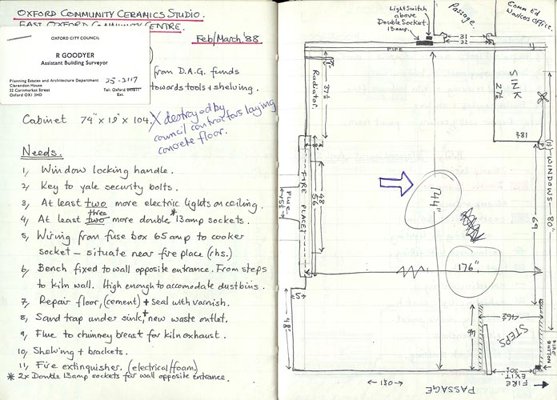 OXFORD COMMUNITY CERAMICS STUDIO.
EAST OXFORD COMMUNITY CENTRE.
Feb/March '88
OXFORD CITY COUNCIL
R GOODYER
Assistant Building Surveyor
Planning Estates and Architecture Department
Clarendon House
52 Cornmarket Street
Oxford OX1 3HD
25-2117
Tel: Oxford
Ext.
from D.A.G. funds
towards tools + shelving.
Cabinet 79" x 19" x 104. X destroyed by
council contractors laying
concrete floor.
Needs.
1, Window locking handle.
2, Key to yale security bolts.
3, At least two more electric lights on ceiling.
three
4, At least two more double * 13amp sockets.
5, Wiring from fuse box 65amp to cooker
socket - situate near fire place (rhs.)
6, Bench fixed to wall opposite entrance. From steps
to kiln wall. High enough to accomodate dustbins.
7, Repair floor, (cement) + seal with varnish.
8, Sand trap under sink, + new waste outlet.
9, Flue to chimney breast for kiln exhaust.
10, Shelving + brackets.
11, Fire extinguisher. (electrical/foam)
* 2x Double 13amp sockets for wall opposite entrance.
Light Switch
above
Double Socket
13amp.
Passage
Comm Ed
Workers Office.
PIPE
32
31
Radiator
37½
SINK
27½
48½
WINDOWS 80"
69
FIRE PLACE
56
48
144"
176"
5"
48"
STEPS
46
30½
FIRE EXIT
←180½→
PASSAGE